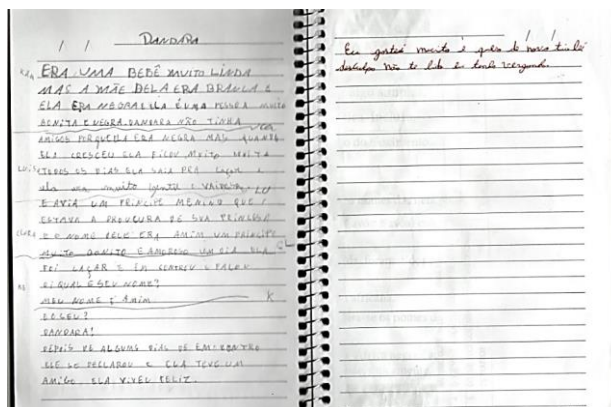 / / DANDARA
ERA UMA BEBÊ MUITO LINDA
MAS A MÃE DELA ERA BRANCA E
ELA ERA NEGRA ELA É UMA PESSOA MUITO
BONITA E NEGRA. DANDARA NÃO TINHA
AMIGOS PORQUE ELA ERA NEGRA MAS QUANDO
ELA CRESCEU ELA FICOU MUITO
TODOS OS DIAS ELA SAIA PRA caçar e
ela era muito gentil e VAIDOSA.
E AVIA UM PRINCIPE MENINO QUE
ESTAVA A PROUCURA DE SUA PRINCESA
E O NOME DELE ERA AMIM UM PRINCIPE
MUITO BONITO E AMOROSO UM DIA ELA
FOI CAÇAR E E FALOU
QUAL É SEU NOME?
MEU NOME É AMIM
E O SEU?
DANDARA!
DEPOIS DE ALGUNS DIAS DE EMCONTRO
ELE SE DECLAROU E ELA TEVE UM
AMIGO. ELA VIVEU FELIZ.
/ /
Eu gostei muito e
desculpa não te tenho vergonha.